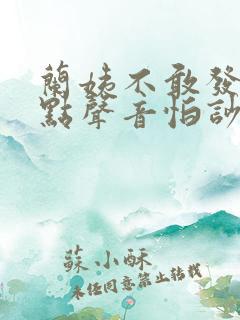 蘭姨不敢發
點聲音怕訬
蘇小酥
未經同意禁止轉載